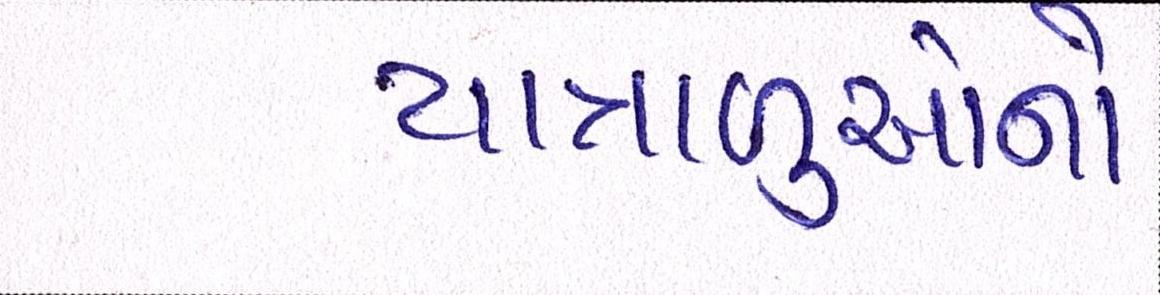 યાત્રાળુઓનો